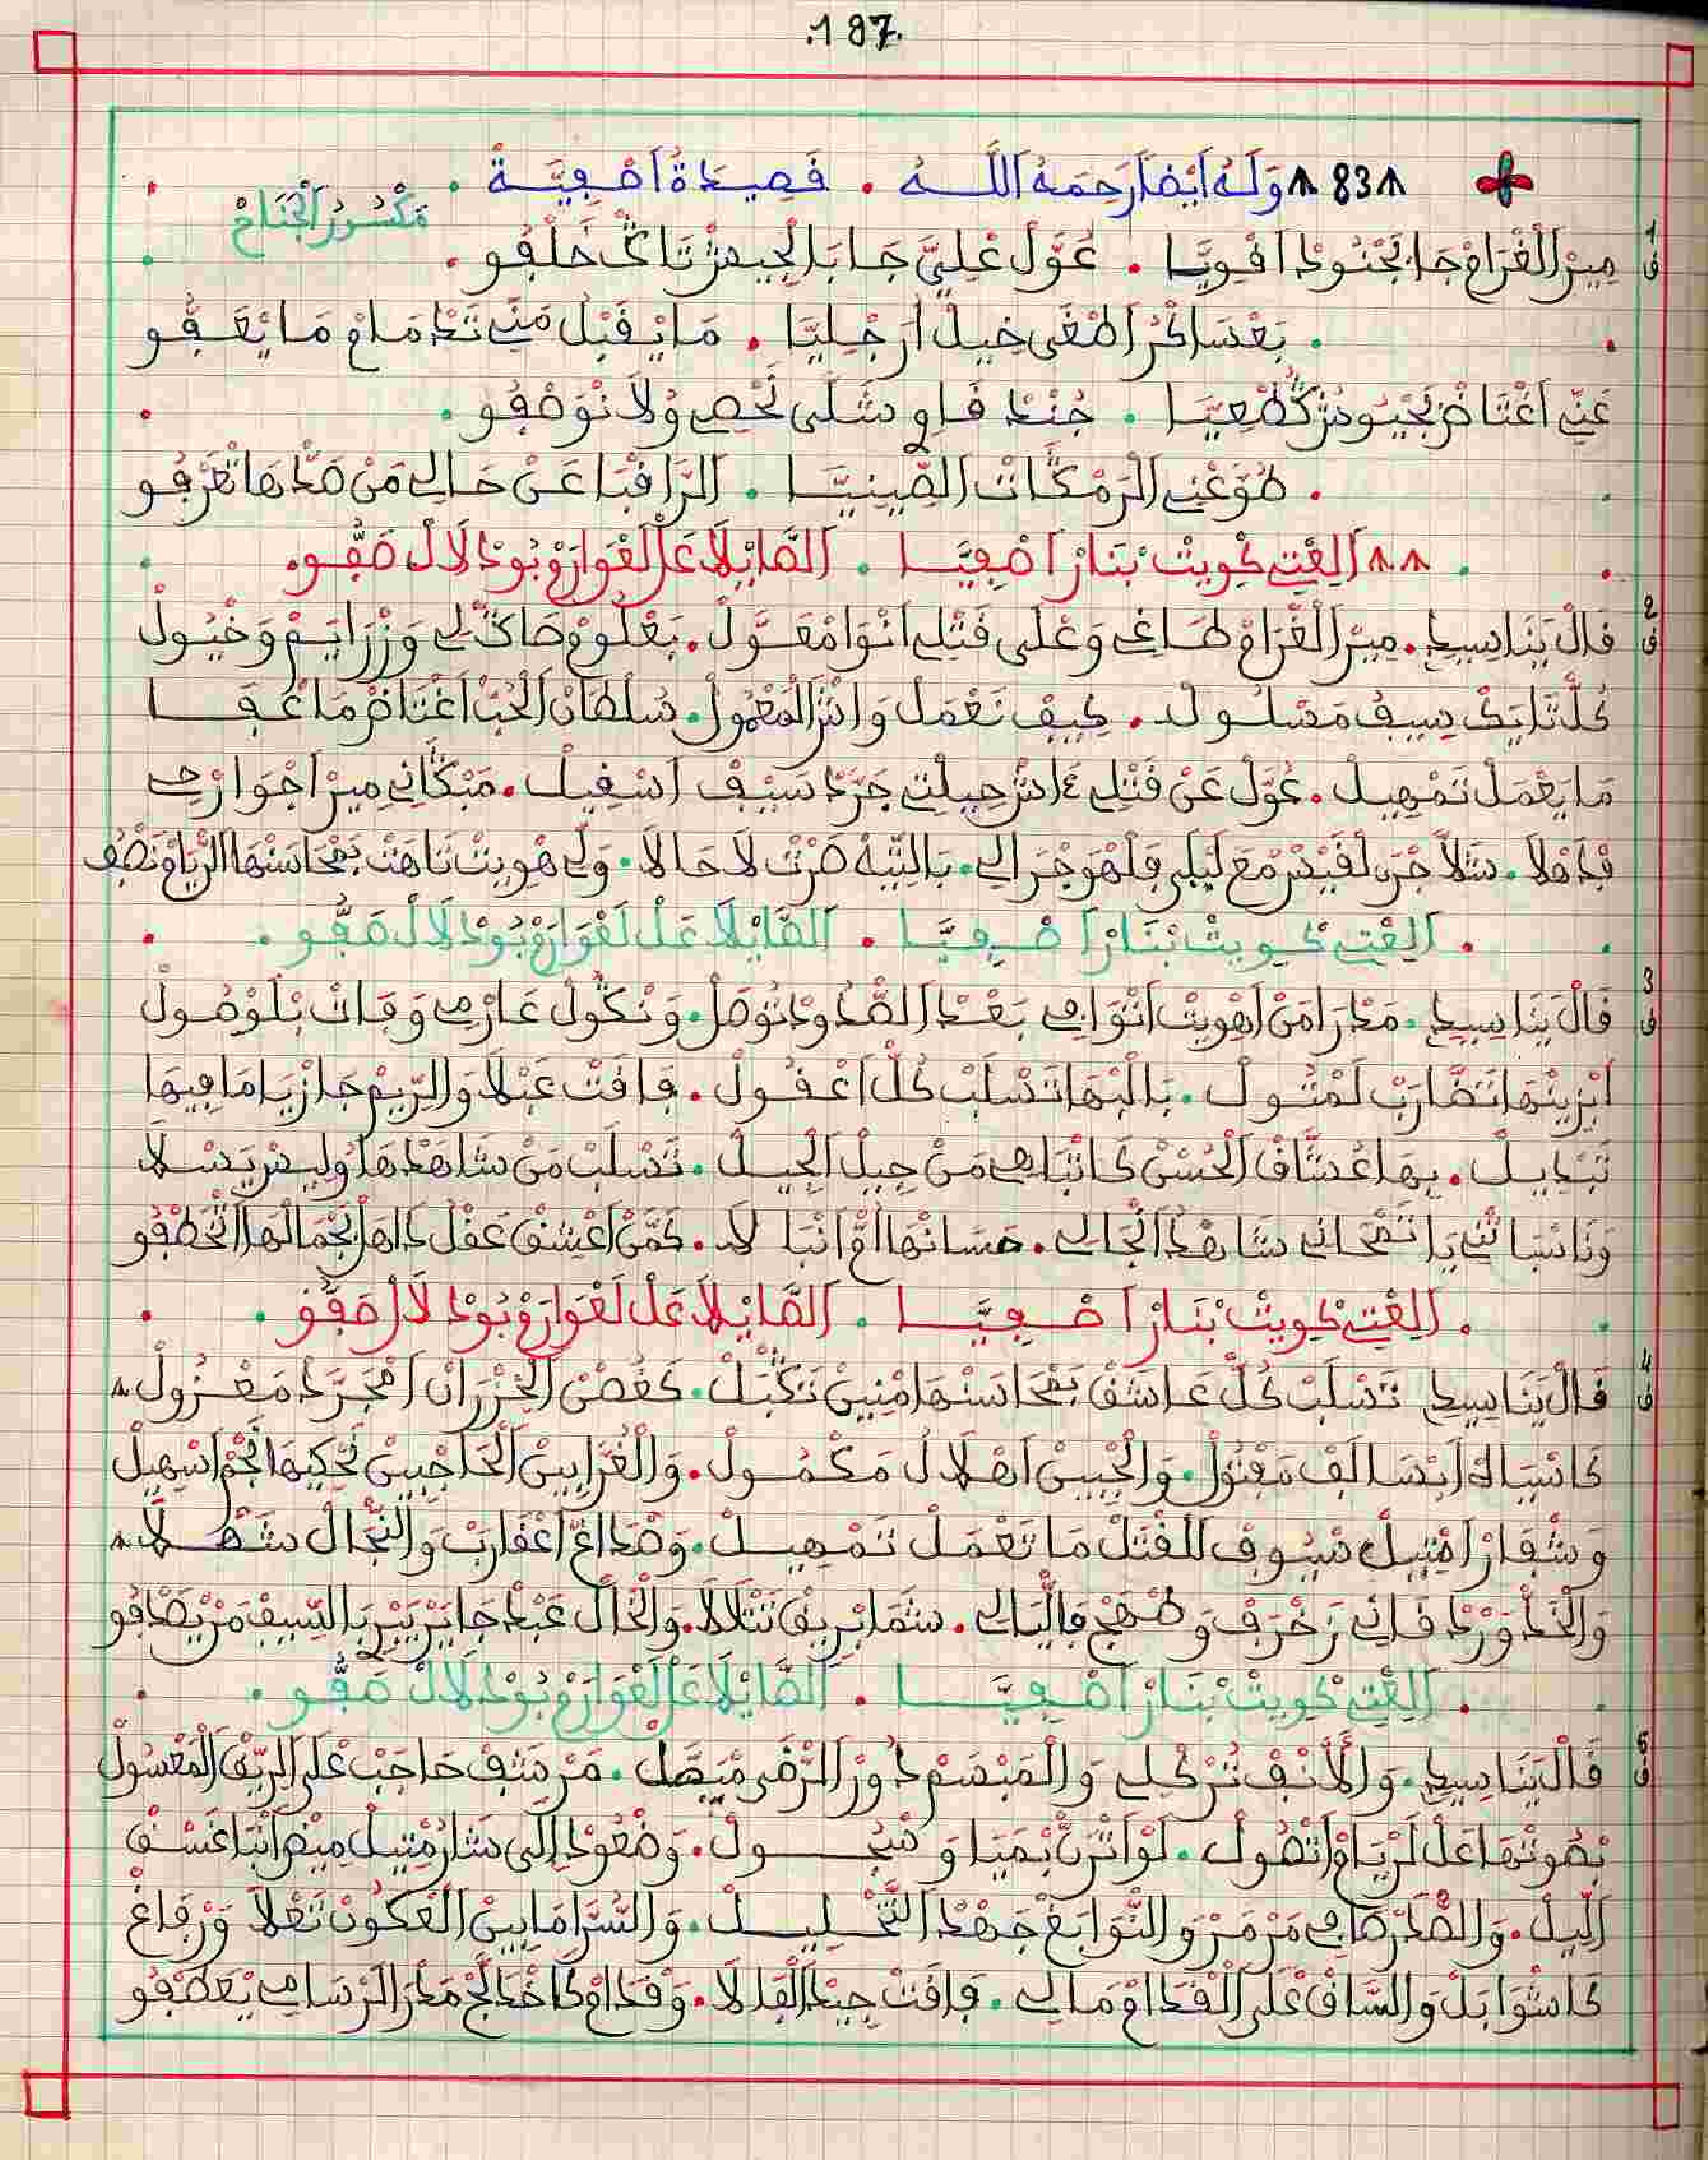 .187.
ᴧ83ᴧ وَلَهُ أَيْضاً رَحِمَهُ اَللَّه . قَصِيدَةُ اَصْفِيَّة .
مَكْسُورْ اَلْجْنَاحْ
1 ق مِيرْ اَلْغْرَامْ جَا بَجْنُودْ اَقْوِيَّا . عَوَّلْ عْلِيَّ جَابَ الْجِيشْ تَاكْ خَلْفُو .
. بَعْسَاكْرْ اَطْغَى خِيلْ اَرْجْلِيَّا . مَا يَقْبَلْ مَنِّي تَدْمَامْ مَا يْعَفُو
عَنِّي اَغْتَاضْ بَجْيُوشْ جُنْدْ قَاوِي شَلَّى نَحْصِي وُلاَ نْوَصْفُو .
. طَوَّعْنِي اَلرَّمْكَاتْ اَلصِّينِيَّا . اَلرَّاقْبَا عَنْ حَالِي مَنْ صَدْهَا تْعَرْفُو
. ᴧᴧ اَلِعْتِي كْوِيتْ بْنَارْ اَصْفِيَّا . اَلصَّايْلَا عَلْ لَعْوَارَمْ بُودْلَالْ صَفُّو .
2 ق قَالْ يَنَا سِيدِي . مِيرْ اَلْغْرَامْ طَاغِي وَعْلَى قَتْلِي اَنْوَا مْعَوَّلْ . بَعْلُومْ صَاكْ لِي وَزْرَايَمْ وَخْيُولْ
كُلّْ تَايَكْ سِيفْ مَسْلُولْ . كِيفْ نَعْمَلْ وَاشْ اَلْمَعْمُولْ . سُلْطَانْ اَلْحُبّْ اَغْتَاضْ مَا عْفَا
مَا يَعْمَلْ تَمْهِيلْ . عَوَّلْ عَنْ قَتْلِي ءَاشْ حِيلْتِي جَرَّدْ سَيْفْ اَسْقِيلْ . مَبْكَانِي مِيرْ اَجْوَارْحِي
فْدَاهْلَا . شَلَّا جْرَى لْقَيْسْ مْعَ لَيْلَى فَلْهْوَ جْرَا لِي . بَالتِّيهْ صَرْتْ لاَ حَالاَ . وَلِّي هْوِيتْ تَاهَتْ بَمْحَاسَنْهَا الرّْيَامْ نَصْفُو
. اَلِعْتِي كْوِيتْ بْنَارْ اَصْفِيَّا . اَلصَّايْلَا عَلْ لَعْوَارَمْ بُودْلَالْ صَفُّو .
3 ق قَالْ يَنَا سِيدِي . مَدْرَا مَنْ اَهْوِيتْ اَنْوَافِي بَعْدْ اَلصّْدُودْ نُوصَلْ . وَنْكُولْ عَارْمِي وَفَاتْ بَلْوْصُولْ
اَبْزِينْهَا تَضَّارَبْ لَمْثُولْ . بَالْبْهَا تَسْلَبْ كُلّْ اَعْقُولْ . فَاقَتْ عَبْلَا وَالرِّيمْ جَازْيَا مَا فِيهَا
تَبْدِيلْ . بِهَا عُشَّاقْ اَلْحُسْنْ كَاتْبَاهِي مَنْ جِيلْ اَلْجِيلْ . تَسْلَبْ مَنْ شَاهَدْهَا وُلِيسْ يَسْلَا
وَنَا سْبَاتْنِي يَا تَمْحَانِي شَاهْدْ اَنْجَالِي . حَسَانْهَا اُمّْ اَنْبَالَا . كَمَّنْ اَعْشِيقْ عَقْلْ دَاهَلْ بَجْمَالْهَا اَتْخَطْفُو
. اَلِعْتِي كْوِيتْ بْنَارْ اَصْفِيَّا . اَلصَّايْلَا عَلْ لَعْوَارَمْ بُودْلَالْ صَفُّو .
4 ق قَالْ يَنَا سِيدِي تَسْلَبْ كُلّْ عَاشَقْ بَمْحَاسَنْهَا مْنِينْ تَكْبَلْ . كَغُصْنْ اَلْخْزْرَانْ اَمْجَرَّدْ مَعْزُولْ ᴧ
كَاسْبَاكْ اَبْسَالَفْ مَفْتُولْ . وَالْجْبِينْ اَهْلَالْ مَكْمُولْ . وَالْغْرَّا بِينْ اَلْحَاجْبِينْ تَحْكِيهَا نَجْمْ اَسْهِيلْ
وَشْفَارْ اَمْتِيلْ سْيُوفْ لَلْقْتَلْ مَا تَعْمَلْ تَمْهِيلْ . وَصْدَاغْ اَعْقَارَبْ وَالنّْجَالْ شَهْلَا ᴧ
وَالْخَدّْ وَرْدْ قَانِي زَخْرَفْ وَضْهَجْ فَالْيَالِي . شَمَا بْرِيقْ تَتْلَالَا . وَالْخَالْ عَبْدْ جَا بَرْبَرْ بَالسِّيفْ مَنْ يْصَادْفُو
. اَلِعْتِي كْوِيتْ بْنَارْ اَصْفِيَّا . اَلصَّايْلَا عَلْ لَعْوَارَمْ بُودْلَالْ صَفُّو .
5 ق قَالْ يَنَا سِيدِي . وَالْأَنْفْ تُرْكْلِي وَالْمَبْسَمْ دُورْ اَلرّْقَى مْيَصَّلْ . مَرْشَفْ حَاجَبْ عْلَى الرِّيقْ اَلْمَعْسُولْ
بْصُوتْهَا عَلْ لَرْيَامْ اَتْصُولْ . لَوْ اَتْرَنَّمْ بَمْيَا وَسْجُولْ . وَضْعُودْ اِلَى شَارْ مْتِيلْ مِيضْ اَنْبَا غَسْقْ
اَللِّيلْ . وَالصّْدَرْ صَافِي مَرْمَرْ وَالنّْوَابَغْ جَهْدْ اَلتَّخْلِيلْ . وَالسُّرَّا مَا بِينْ اَلْعْكُونْ تَعْلَا وَرْفَاغْ
كَاشْوَابَلْ وَالسَّاقْ عْلَى اَلْقْدَامْ مَالِي . فَاقَتْ جِيدْ اَلْفَالَا . وَقْدَامْ كَاخْدَلَّجْ مَدْرَ اَلرّْسَامِي يْعَطْفُو